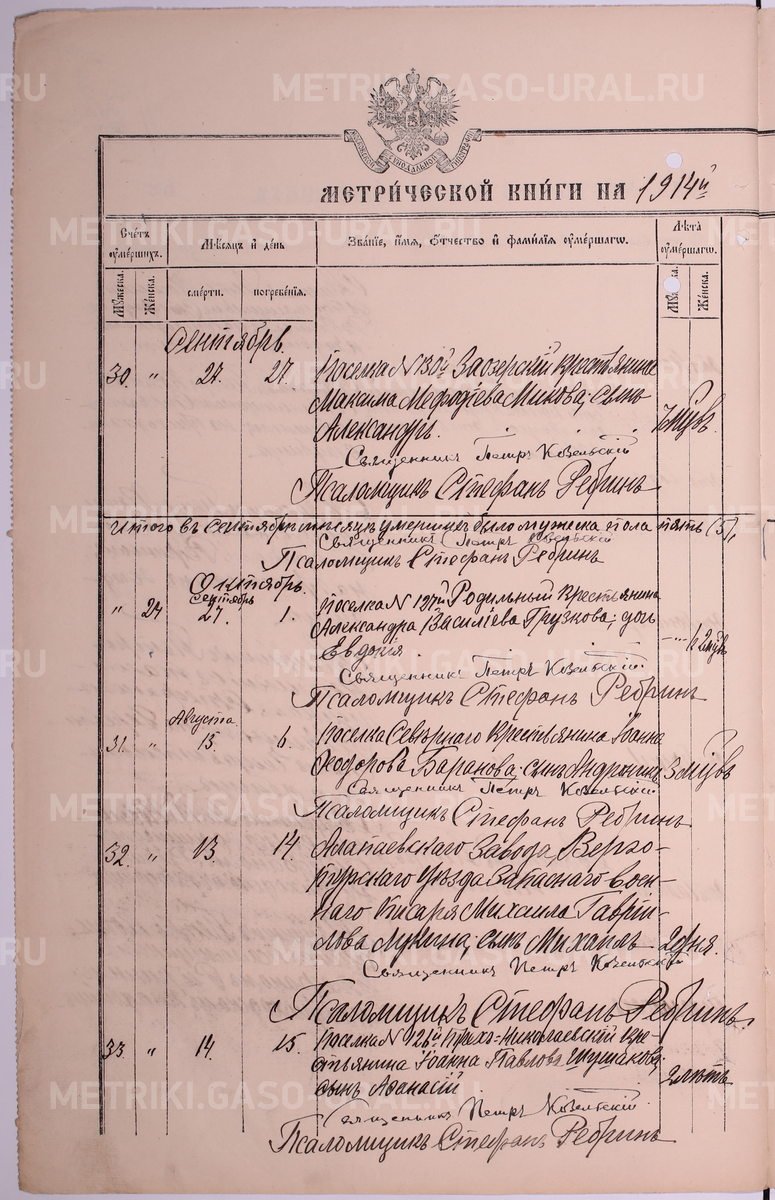 METRIKI.GASO-URAL.RU
МЕТРИЧЕСКОЙ КНИГИ НА 1914й
Счетъ оумершихъ.
Мѣсяцъ и день
Званіе, имя, отчество и фамилія оумершагѡ.
Лѣта оумершагѡ.
Мужеска.
Женска.
смерти.
погребенія.
Женска.
Сентябрь.
30. " 24. 27. Поселка N 130й Заозерскій крестьянина
Максима Мефодіева Микова, сынъ
Александръ.
Священникъ Петръ Козельскій
Псаломщикъ Стефанъ Ребринъ
Итого въ Сентябрѣ мѣсяцѣ умершихъ было мужеска пола пять (5),
Священникъ Петръ Козельскій
Псаломщикъ Стефанъ Ребринъ
Октябрь.
Сентябрь
" 24 27. 1. Поселка N 197й Родильный Крестьянина
Александра Василіева Грузкова, дочь
Евдокія
Священникъ Петръ Козельскій
Псаломщикъ Стефанъ Ребринъ
Августа
31. " 15. 6. Поселка Сѣвернаго Крестьянина Іоанна
Ѳеодорова Баранова, сынъ
Священникъ Петръ Козельскій
Псаломщикъ Стефанъ Ребринъ
32. " 13. 14. Алапаевскаго Завода, Верхо-
турскаго Уѣзда Запаснаго воен-
наго Писаря Михаила Гавріи-
лова Лукина, сынъ Михаилъ 2 дня.
Священникъ Петръ Козельскій
Псаломщикъ Стефанъ Ребринъ.
33. " 14. 15. Поселка N 126й Николаевскій кре-
стьянина Іоанна Павлова Шушакова,
сынъ Аѳанасій 2 лѣтъ
Священникъ Петръ Козельскій
Псаломщикъ Стефанъ Ребринъ